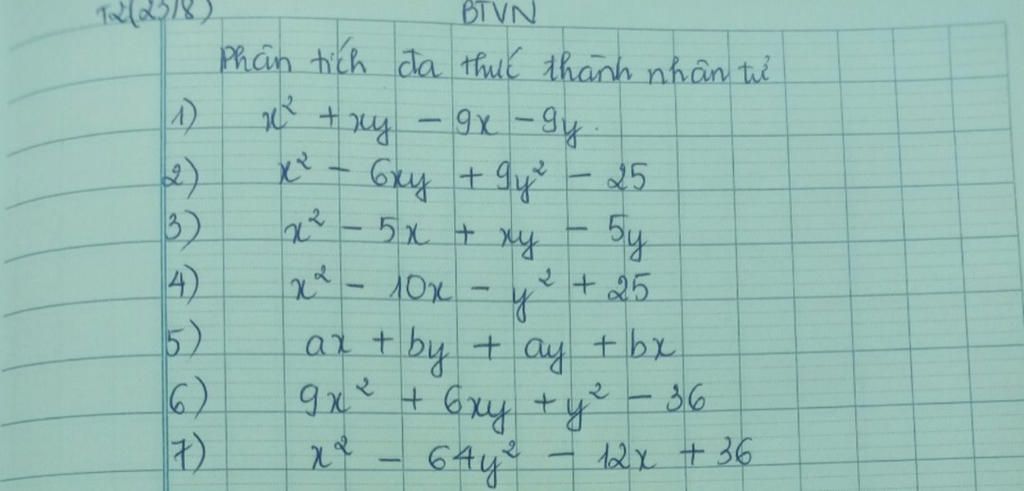 T2(23/8) BTVN
Phân tích đa thức thành nhân tử
1) x² + xy - 9x - 9y.
2) x² - 6xy + 9y² - 25
3) x² - 5x + xy - 5y
4) x² - 10x - y² + 25
5) ax + by + ay + bx
6) 9x² + 6xy + y² - 36
7) x² - 64y² - 12x + 36